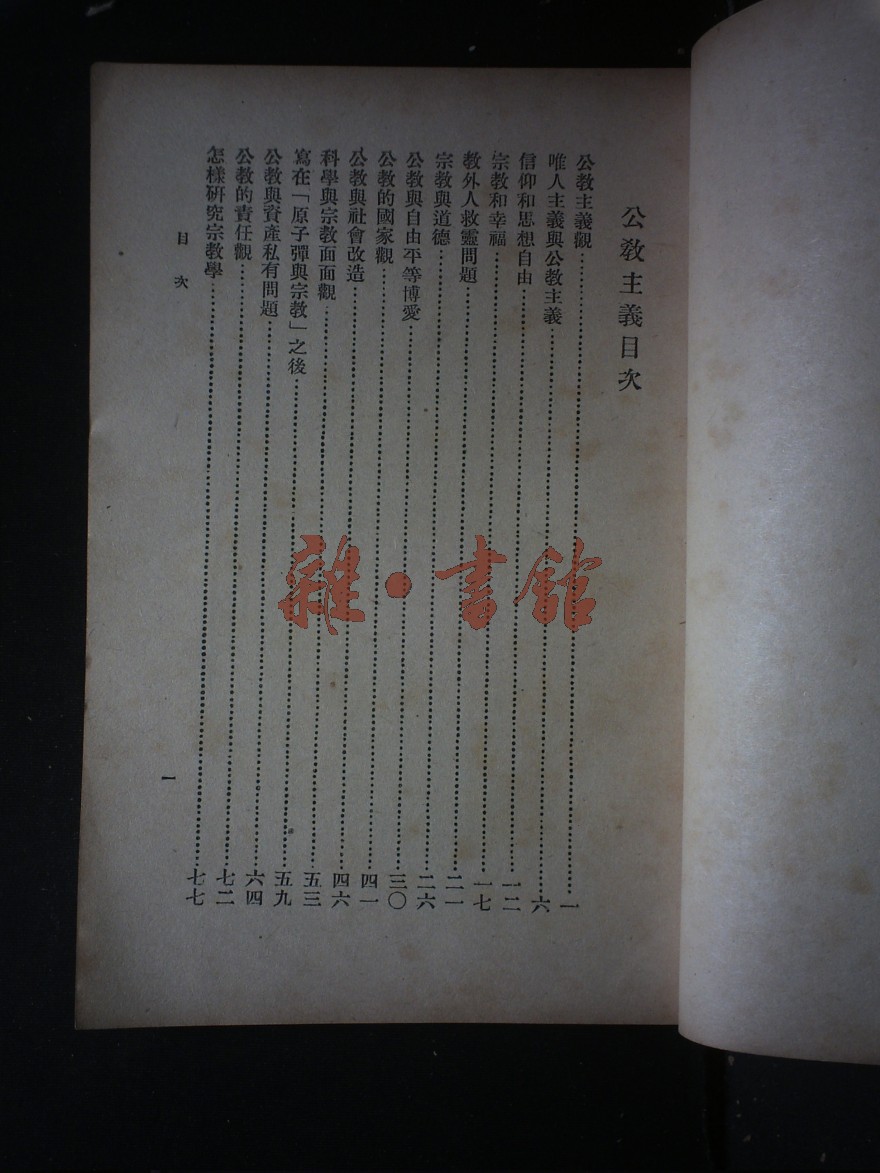 公教主義目次
公教主義觀……一
唯人主義與公教主義……六
信仰和思想自由……一二
宗教和幸福……一七
教外人救靈問題……二一
宗教與道德……二六
公教與自由平等博愛……三〇
公教的國家觀……四一
公教與社會改造……四六
科學與宗教面面觀……五三
寫在「原子彈與宗教」之後……五九
公教與資產私有問題……六四
公教的責任觀……七二
怎樣研究宗教學……七七
目次
一
雜·書館